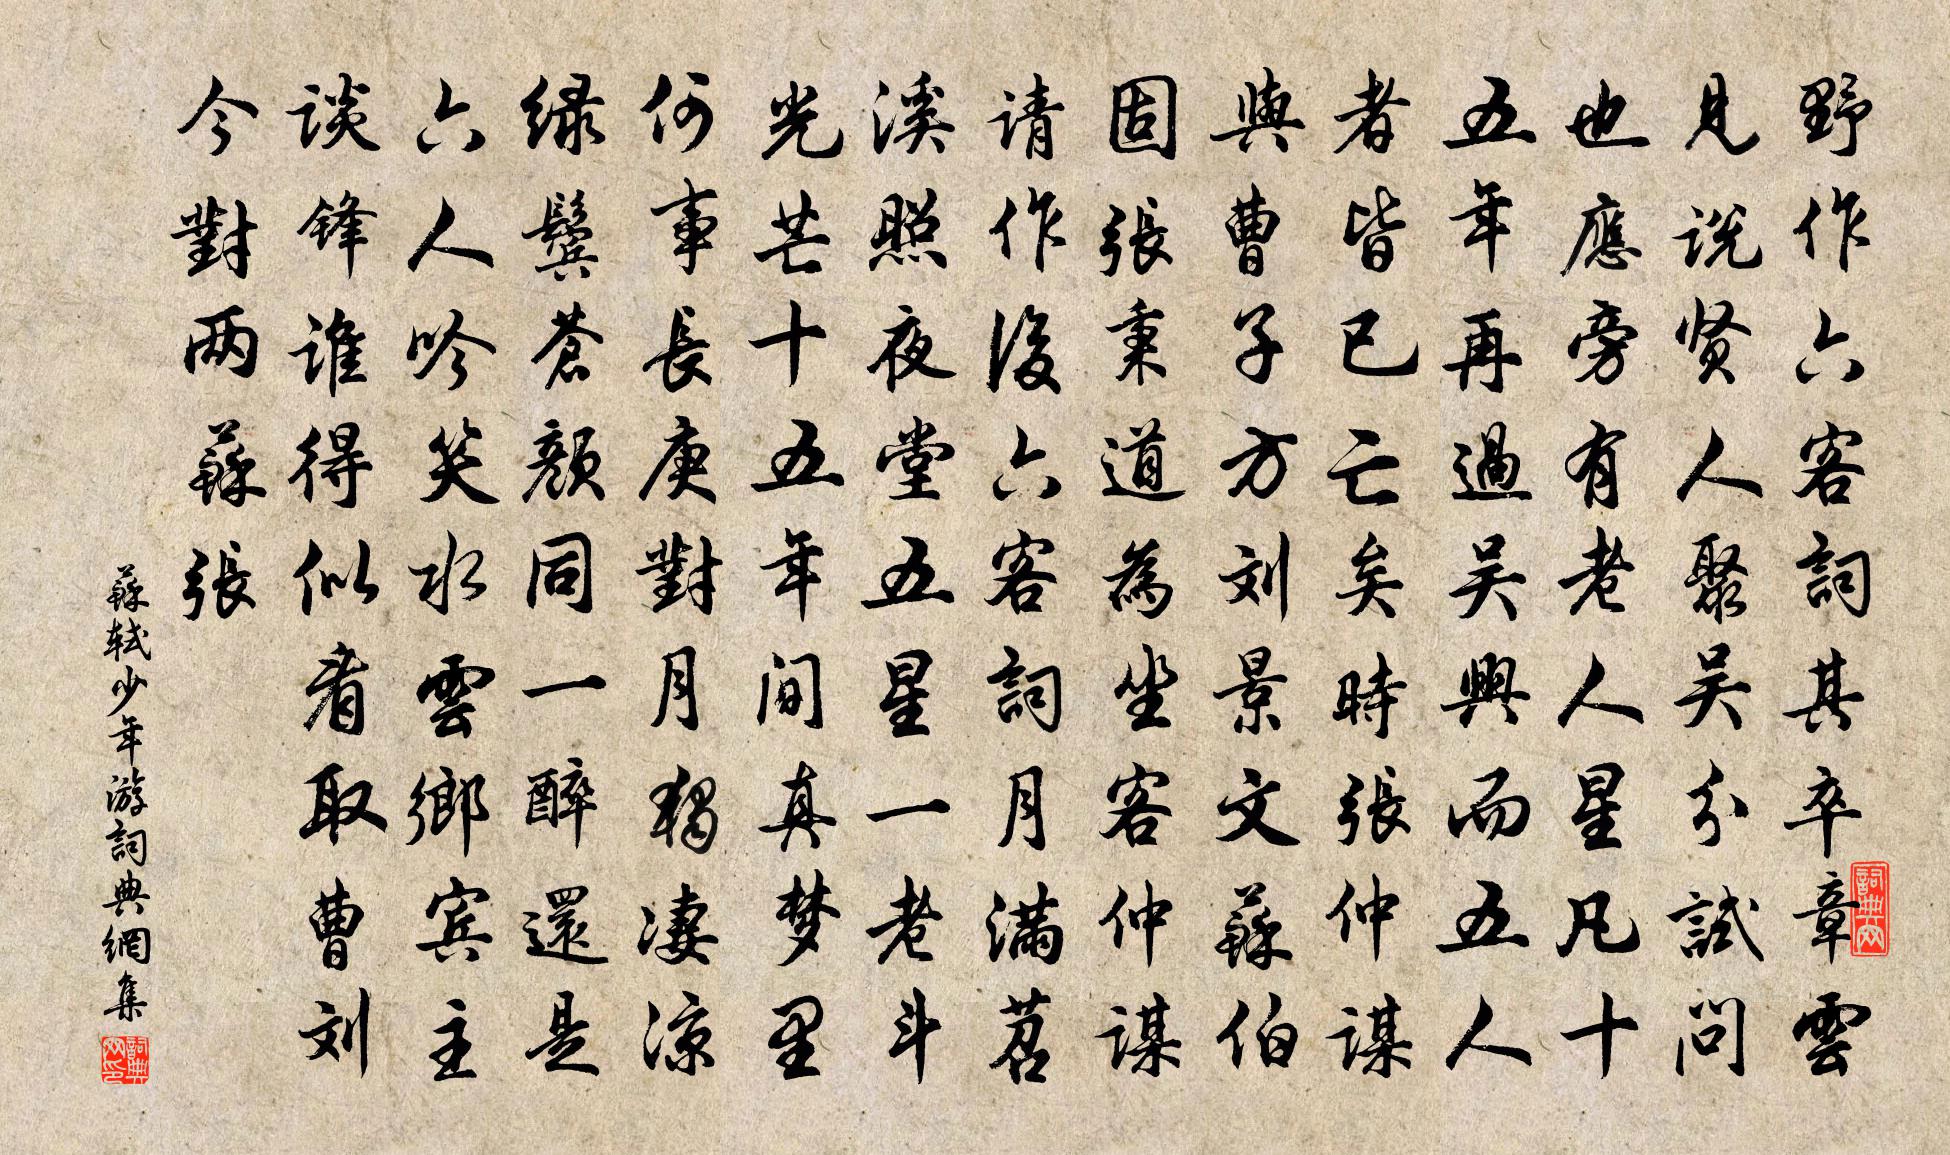 野作六客詞其卒章雲
見说贤人聚吴分試問
也應旁有老人星凡十
五年再過吴興而五人
者皆已亡矣時張仲谋
與曹子方刘景文蘇伯
固張秉道為坐客仲谋
请作後六客詞月满苕
溪照夜堂五星一老斗
光芒十五年间真梦里
何事長庚對月獨凄凉
绿鬓蒼颜同一醉還是
六人吟笑水雲鄉宾主
谈锋谁得似看取曹刘
今對两蘇張
蘇轼少年游詞典網集
詞典网
詞典网印